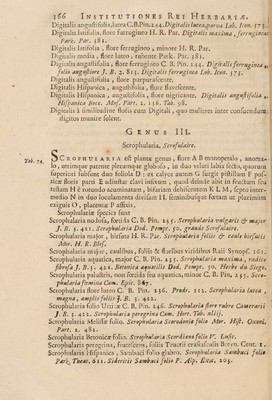 166 INSTITUTIONES REI HERBARIÆ.
Digitalis angustifolia, lutea C. B. Pin. 244. Digitalis lutea, parva Lob. Icon. 573.
Digitalis latifolia, flore ferrugineo H. R. Par. Digitalis maxima, ferruginea
Park. Par. 381.
Digitalis latifolia, flore ferrugineo, minore H. R. Par.
Digitalis media, flore luteo, rubente Park. Par. 381.
Digitalis angustifolia, flore ferrugineo C. B. Pin. 244. Digitalis ferruginea
folio angustiore J. B. 2. 813. Digitalis ferruginea Lob. Icon. 573.
Digitalis angustifolia, flore purpurascente.
Digitalis Hispanica, angustifolia, flore flavescente.
Digitalis Hispanica, angustifolia, flore nigricante. Digitalis angustifolia
Hispanica Bocc. Mus. Part. 2. 136. Tab. 98.
Digitalis à similitudine floris cum Digitali, quo mulieres inter consuendum
digitos munire solent.
GENUS III.
Scrophularia. Scrofulaire.
Tab. 74.
SCROPHULARIA est plantæ genus, flore A B monopetalo, anoma-
lo, utrimque patente plerumque globoso, in duo veluti labia secto, quorum
superiori subsunt duo foliola D: ex calyce autem G surgit pistillum F pos-
ticæ floris parti E adinstar clavi infixum, quod deinde abit in fructum seu
testam H rotundo acuminatam, bifariam dehiscentem K L M, septo inter-
medio N in duo loculamenta divisam II. seminibusque fœtam ut plurimum
exiguis O, placentæ P affixis.
Scrophulariæ species sunt
Scrophularia nodosa, fœtida C. B. Pin. 235. Scrophularia vulgaris & major
J. B. 3. 421. Scrophularia Dod. Pempt. 50. grande Scrofulaire.
Scrophularia major, hirsuta H. R. Par. Scrophularia foliis & caule hirsutis
Mor. H. R. Bles.
Scrophularia major, caulibus, foliis & floribus viridibus Raii Synops. 161.
Scrophularia aquatica, major C. B. Pin. 235. Scrophularia maxima, radice
fibrosa J. B. 3. 421. Betonica aquatilis Dod. Pempt. 50. Herbe du Siege.
Scrophularia palustris, non fœtida seu aquatica, minor C. B. Pin. 235. Scro-
phularia fœmina Cam. Epit. 867.
Scrophularia flore luteo C. B. Pin. 236. Prodr. 112. Scrophularia lutea,
magna, amplis foliis J. B. 3. 422.
Scrophularia folio Urticæ C. B. Pin. 246. Scrophularia flore rubro Camerarii
J. B. 3. 422. Scrophularia peregrina Cam. Hort. Tab. xliij.
Scrophularia Melissæ folio. Scrophularia Scorodonia folio Mor. Hist. Oxoni.
Part. 2. 482.
Scrophularia Betonicæ foliis. Scrophularia Scordioni folio V. Lusit.
Scrophularia peregrina, frutescens, foliis Teucrii crassiusculis Breyn. Cent. 1.
Scrophularia Hispanica, Sambuci folio glabro. Scrophularia Sambuci folio
Park. Theat. 611. Sideritis Sambuci folio P. Alp. Exot. 203.